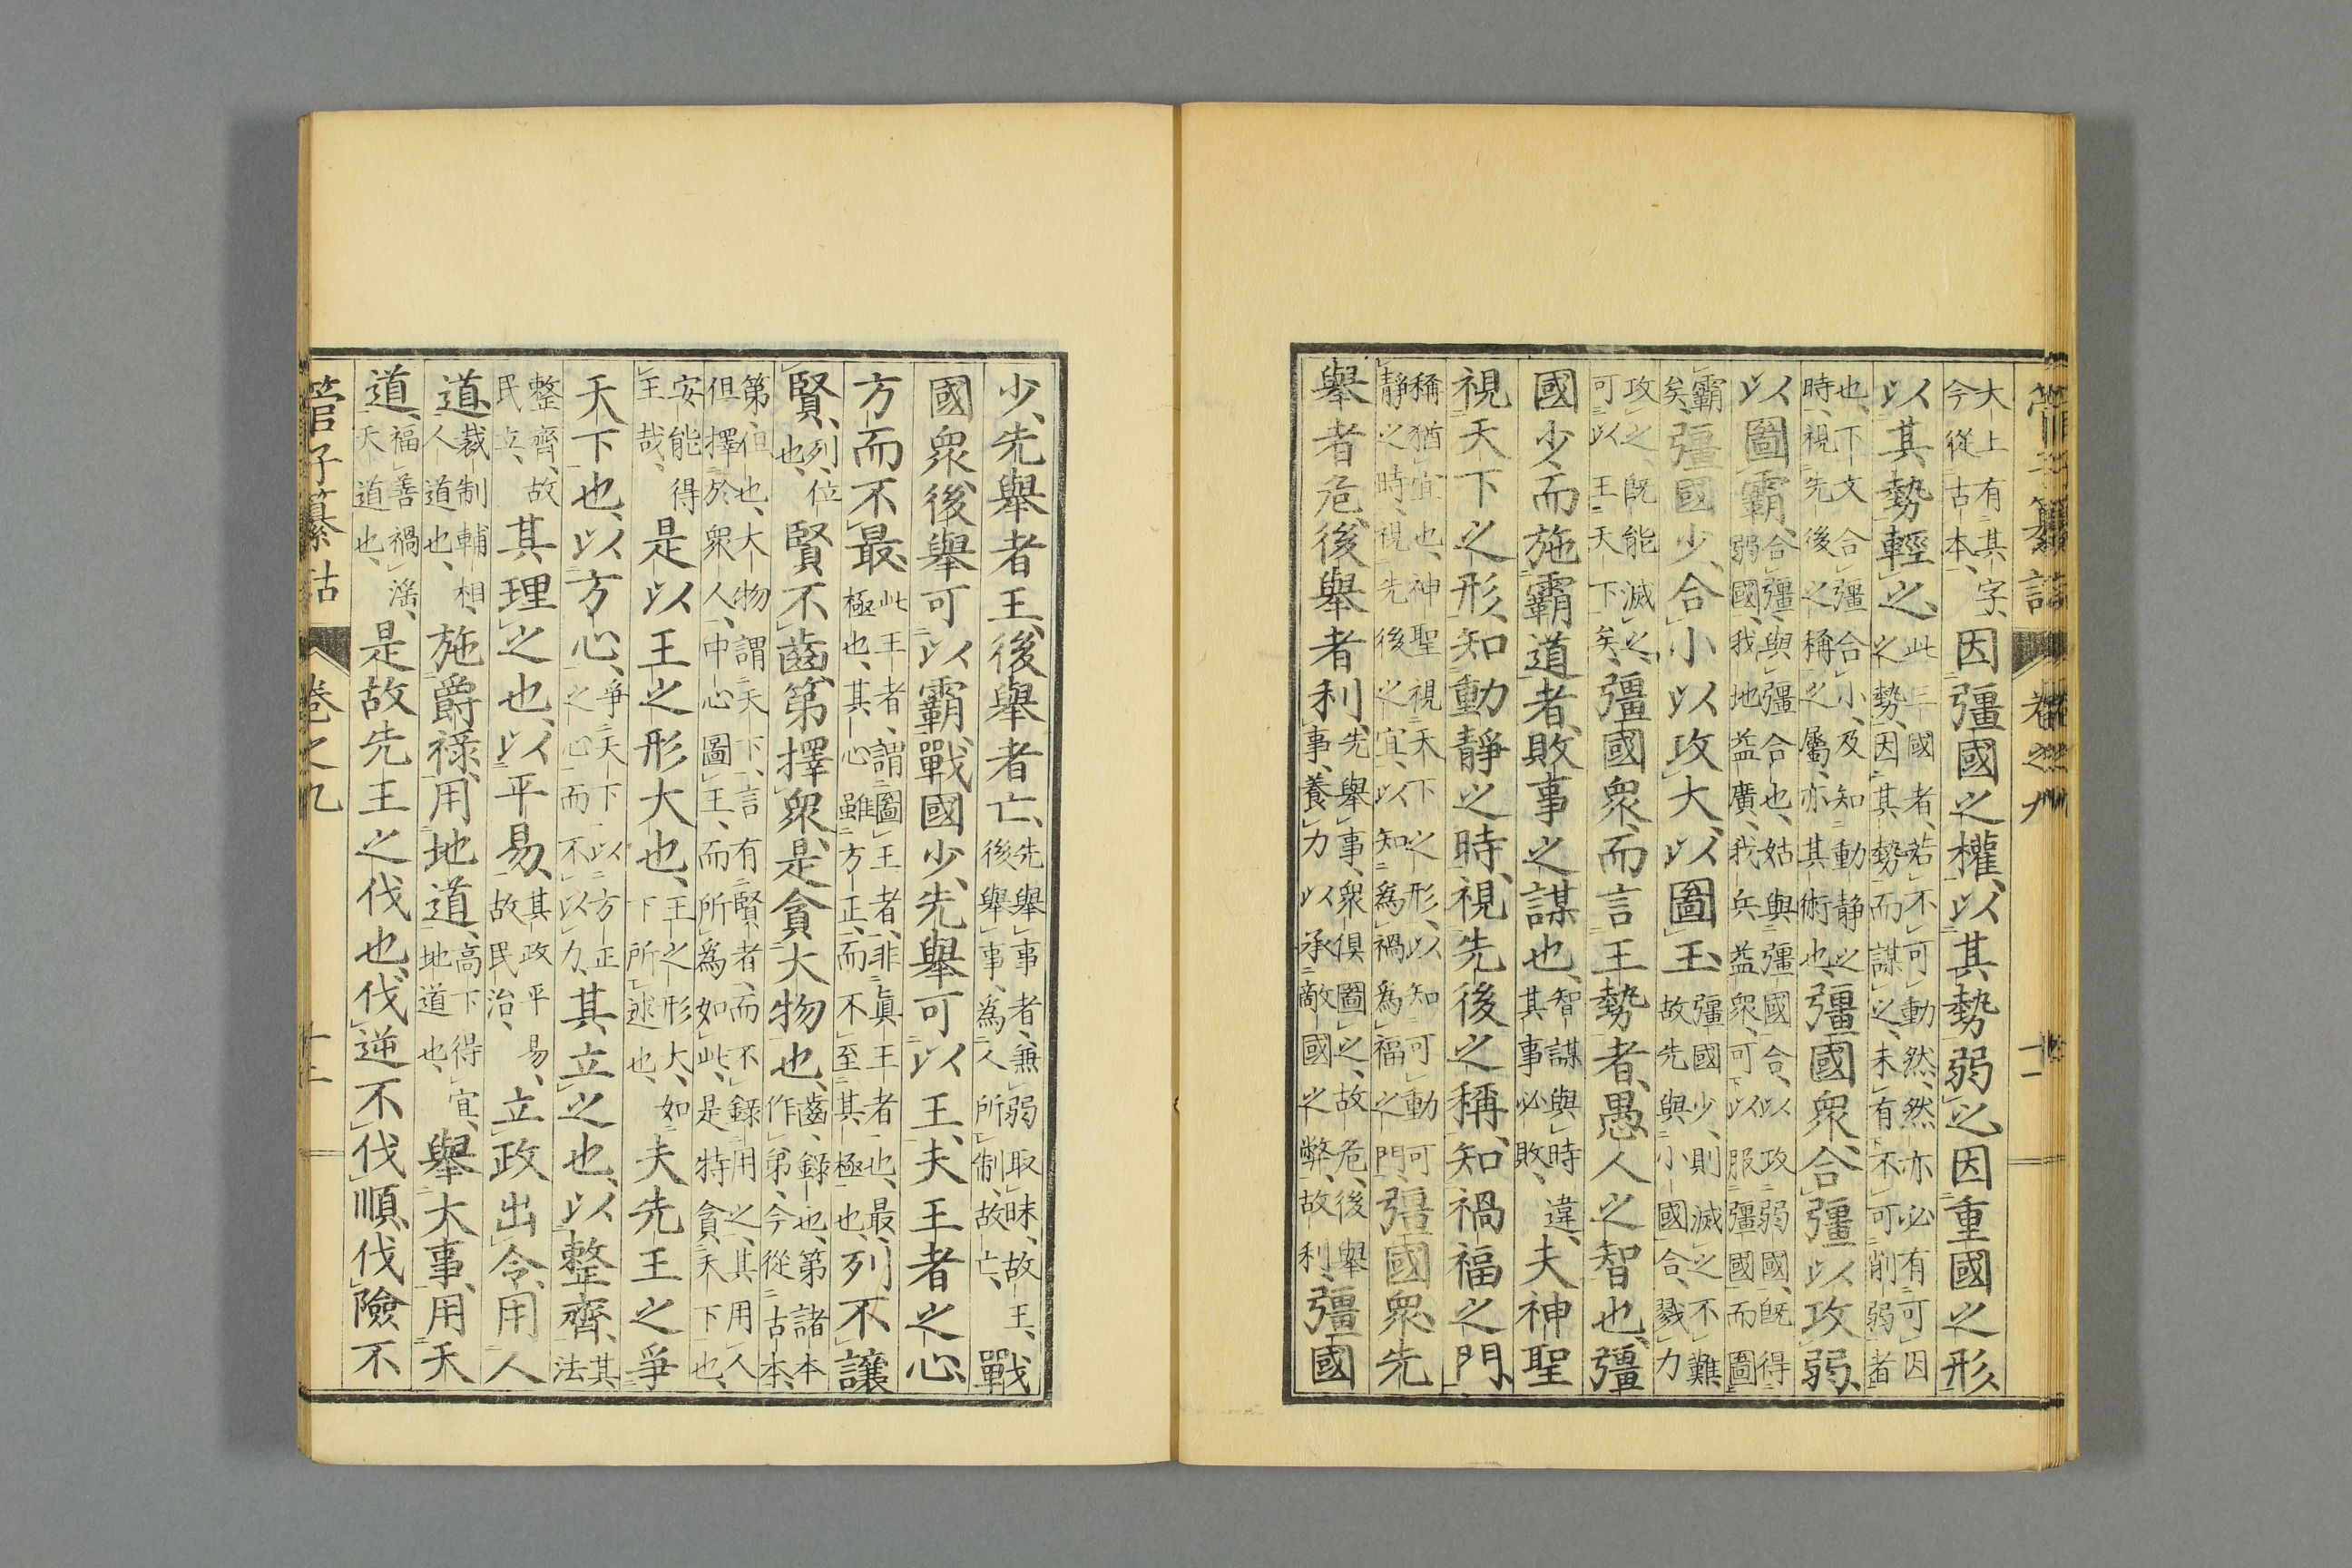 管子纂詁　卷之九　十一
大上有其字、今從古本、因彊國之權、以其勢弱之、因重國之形、
以其勢輕之、此三國者、若不可動然、然亦必有可因之勢、因其勢而謀之、未有不可削弱者
也、下文合彊合小、及知動静之時、視先後之稱之屬、亦其術也、彊國衆、合彊以攻弱、
以圖霸、合彊、與彊合也、姑與彊國合、以攻弱國、既得弱國、我地益廣、我兵益衆、可以服彊國而圖
霸矣、彊國少、合小以攻大、以圖王、彊國少、則滅之不難故先與小國合、戮力
攻之、既能滅之、可以王天下矣、彊國衆、而言王勢者、愚人之智也、彊
國少、而施霸道者、敗事之謀也、智謀與時違、其事必敗、夫神聖
視天下之形、知動靜之時、視先後之稱、知禍福之門、
稱猶宜也、神聖視天下之形、以知可動可靜之時、視先後之宜、以知爲禍爲福之門、彊國衆、先
舉者危、後舉者利、先舉事、衆俱圖之、故危、後舉事、養力以承敵國之弊、故利、彊國
少、先舉者王、後舉者亡、先舉事者、兼弱取昧、故王、後舉事、爲人所制、故亡、戰
國衆、後舉可以霸、戰國少、先舉可以王、夫王者之心、
方而不最、此王者、謂圖王者、非眞王者也、最、極也、其心雖方正、而不至其極也、列不讓
賢、列、位也、賢不齒第擇衆、是貪大物也、齒、錄也、第諸本作第、今從古本、
第、但也、大物謂天下、言有賢者、而不錄用之、其用人但擇於衆人、中心圖王、而所爲如此、是特貪天下也、
安能得王哉、是以王之形大也、王之形大、如下所述也、夫先王之爭
天下也、以方心、爭天下以方正之心、而不以力、其立之也、以整齊、其法
整齊、故民立、其理之也、以平易、其政平易、故民治、立政出令、用人
道、裁制輔相、人道也、施爵祿、用地道、高下得宜、地道也、舉大事、用天
道、福善禍淫、天道也、是故先王之伐也、伐逆不伐順、伐險不
管子纂詁　卷之九